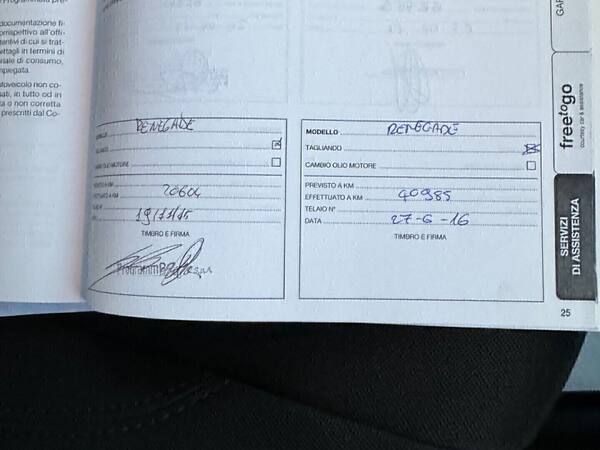 documentazione fi-
orrispettivo all'offi-
tantivi di cui si trat-
ettagli in termini di
iale di consumo,
mpiegata.
utoveicolo non co-
uati, in tutto od in
ta o non corretta
prescritti dal Co-
RENEGADE
CAMBIO OLIO MOTORE
PREVISTO A KM
EFFETTUATO A KM 20604
19/11/15
TIMBRO E FIRMA
MODELLO RENEGADE
TAGLIANDO
CAMBIO OLIO MOTORE
PREVISTO A KM
EFFETTUATO A KM 40985
TELAIO N°
DATA 27-6-16
TIMBRO E FIRMA
GAR
freetogo
courtesy car & assistance
SERVIZI
DI ASSISTENZA
25